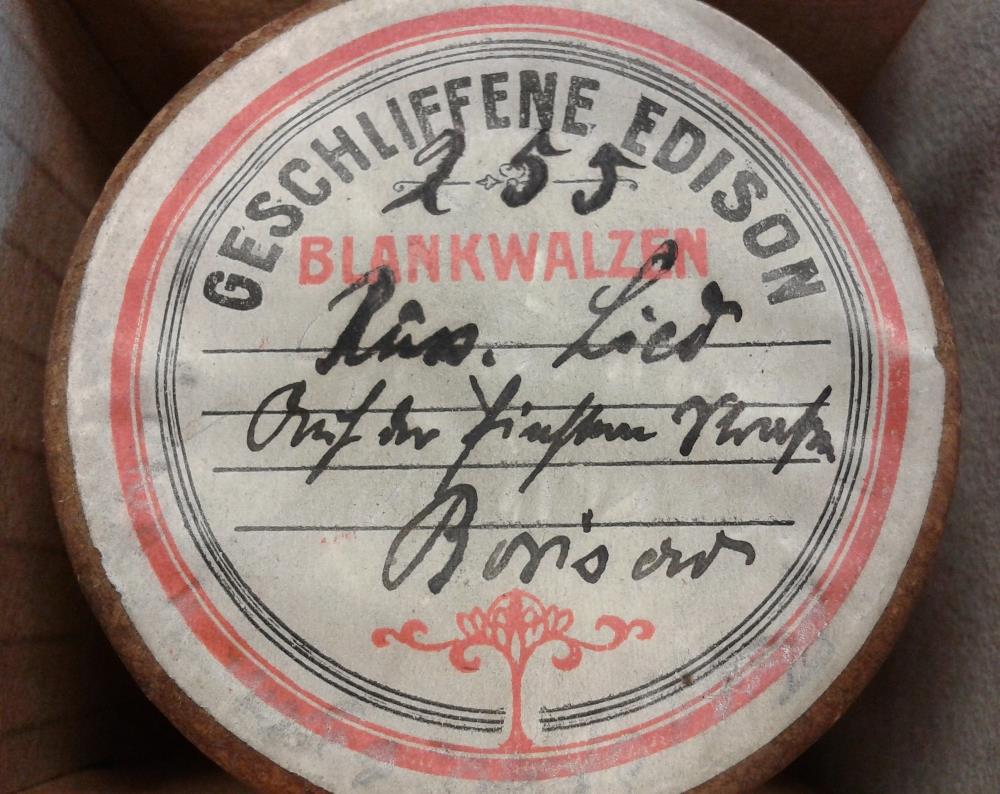 GESCHLIFFENE EDISON
255
BLANKWALZEN
Russ. Lied
Auf der finstern Strasse
Borisow